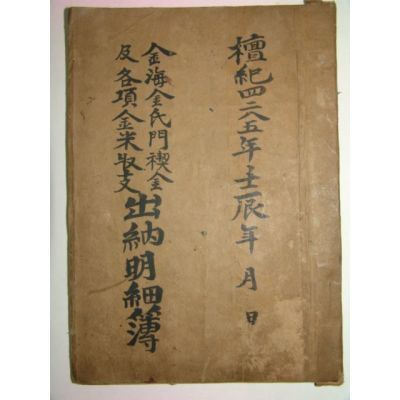 檀紀四二八五年壬辰年 月 日
金海金氏門禊金
及各項金米収支
出納明細簿